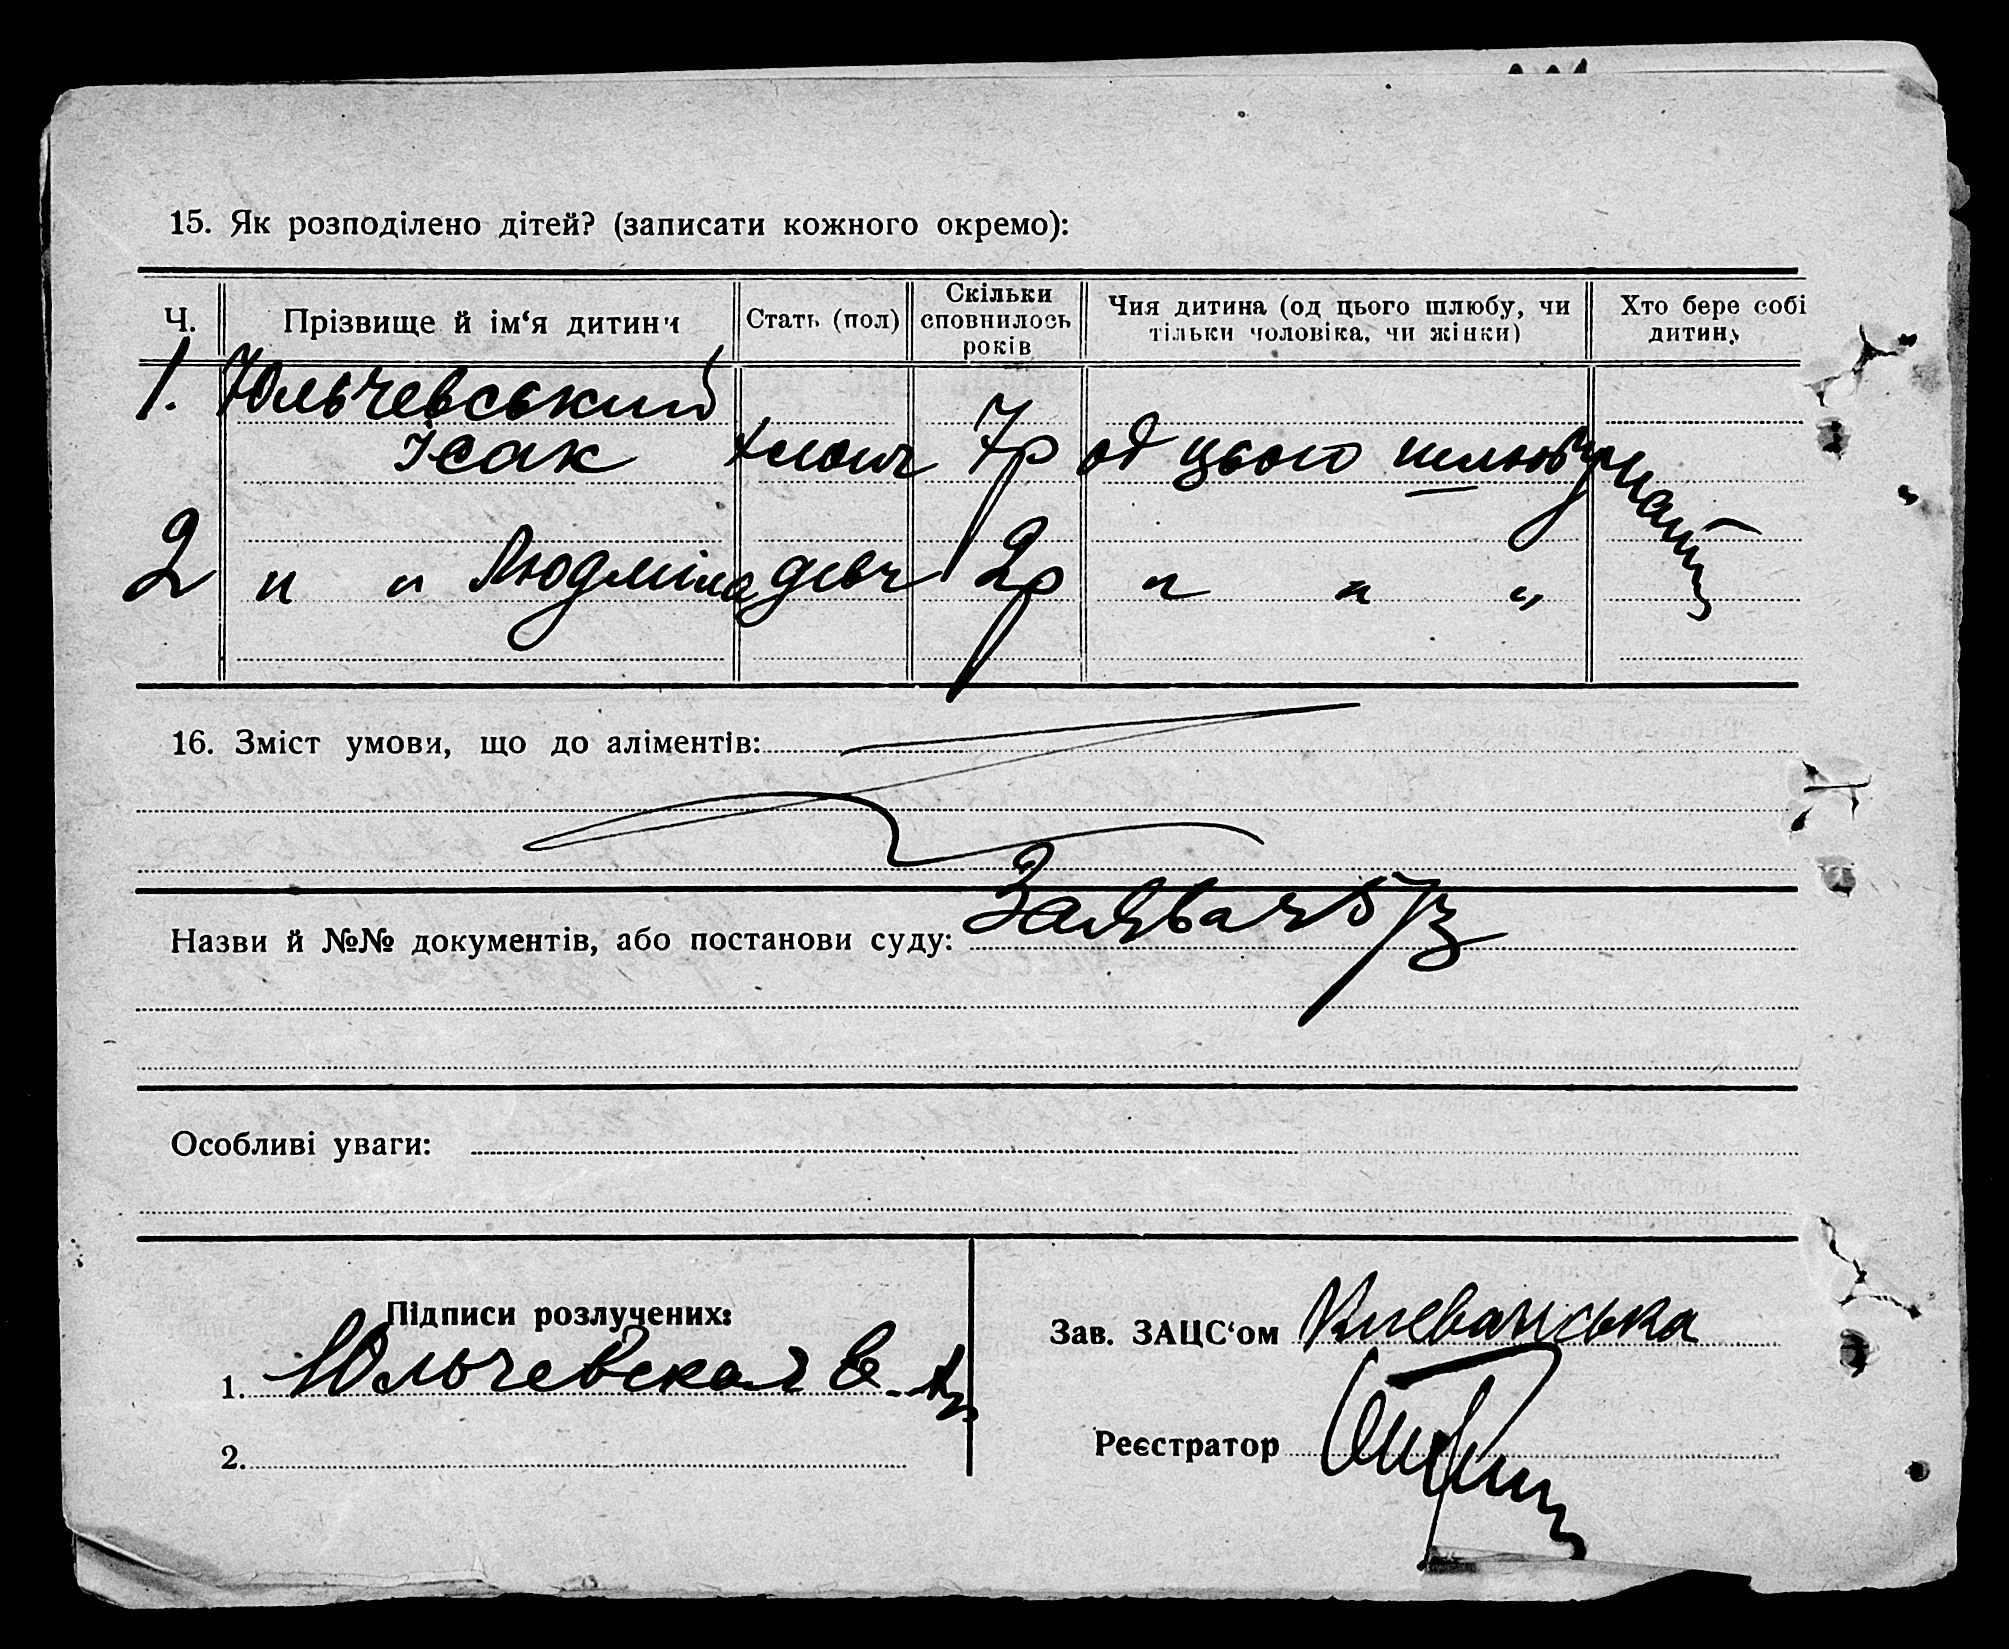 15. Як розподілено дітей? (записати кожного окремо):
Ч. Прізвище й ім‘я дитини Стать (пол) Скільки сповнилось років Чия дитина (од цього шлюбу, чи тільки чоловіка, чи жінки) Хто бере собі дитину
1. Юльчевський
Ісак хлопч 7р од цього шлюбу мати
2 " " Людміла дівч 2р " " "
16. Зміст умови, що до аліментів:
Назви й №№ документів, або постанови суду: Заява ч 5/3
Особливі уваги:
Підписи розлучених:
1. Юльчевская Е.
2.
Зав. ЗАЦС‘ом
Реєстратор